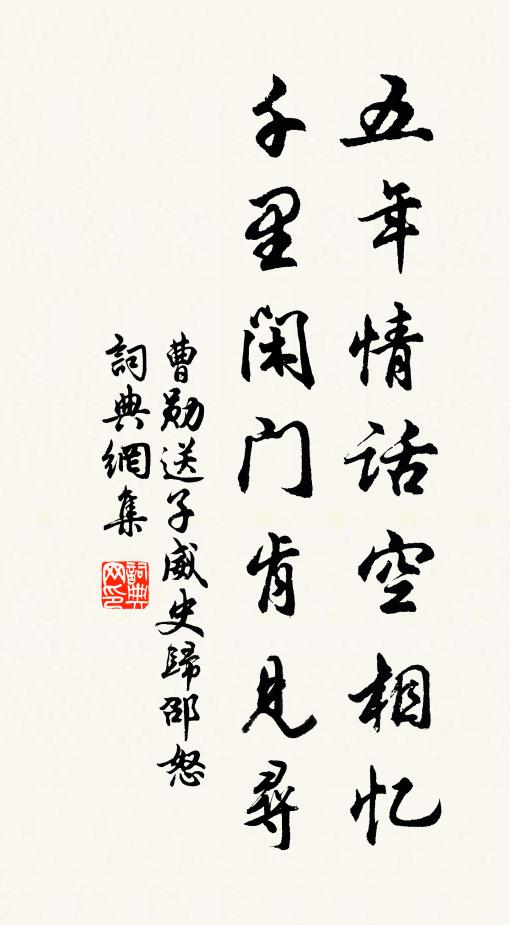 五年情话空相忆
千里闲门肯见寻
曹勋送子威史歸邵怒
詞典網集
詞典网印